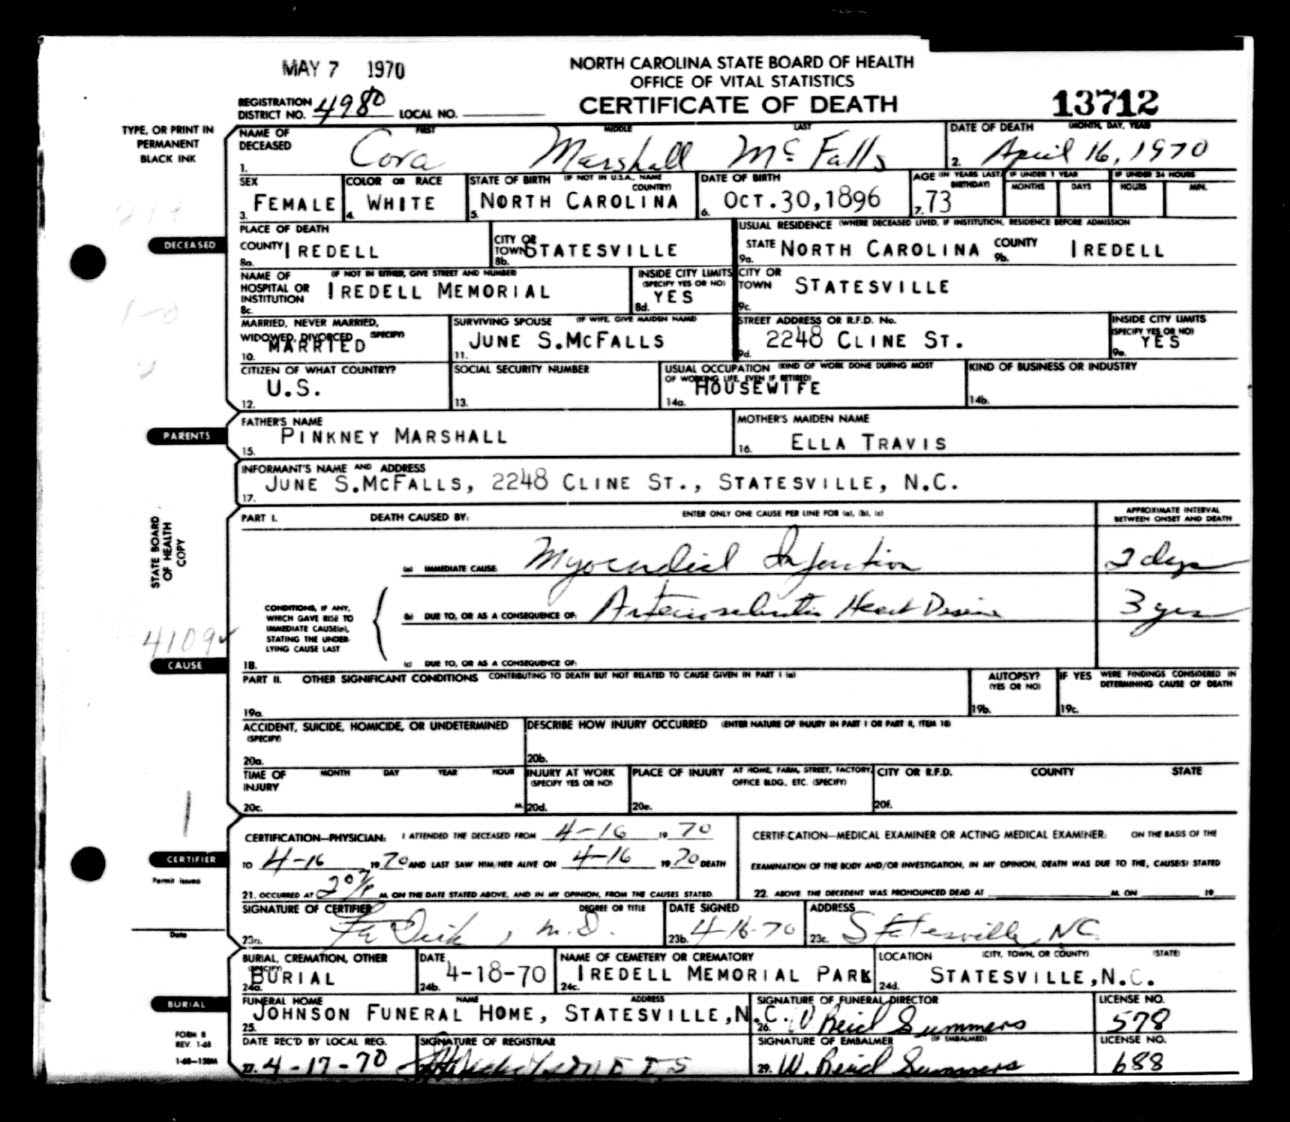 MAY 7 1970
NORTH CAROLINA STATE BOARD OF HEALTH
OFFICE OF VITAL STATISTICS
CERTIFICATE OF DEATH
13712
REGISTRATION DISTRICT NO. 4980 LOCAL NO.
TYPE, OR PRINT IN
PERMANENT
BLACK INK
NAME OF DECEASED FIRST MIDDLE LAST
1. Cora Marshall McFalls
DATE OF DEATH (MONTH, DAY, YEAR)
2. April 16, 1970
SEX
3. FEMALE
COLOR OR RACE
4. WHITE
STATE OF BIRTH (IF NOT IN U.S.A., NAME COUNTRY)
5. NORTH CAROLINA
DATE OF BIRTH
6. OCT. 30, 1896
AGE (IN YEARS LAST BIRTHDAY)
7. 73
IF UNDER 1 YEAR
MONTHS DAYS
IF UNDER 24 HOURS
HOURS MIN.
DECEASED
PLACE OF DEATH
COUNTY IREDELL
8a.
CITY OR TOWN STATESVILLE
8b.
USUAL RESIDENCE (WHERE DECEASED LIVED, IF INSTITUTION, RESIDENCE BEFORE ADMISSION
STATE NORTH CAROLINA
9a.
COUNTY IREDELL
9b.
NAME OF HOSPITAL OR INSTITUTION (IF NOT IN EITHER, GIVE STREET AND NUMBER)
8c. IREDELL MEMORIAL
INSIDE CITY LIMITS (SPECIFY YES OR NO)
YES
8d.
CITY OR TOWN STATESVILLE
9c.
MARRIED, NEVER MARRIED, WIDOWED, DIVORCED (SPECIFY)
10. MARRIED
SURVIVING SPOUSE (IF WIFE, GIVE MAIDEN NAME)
11. JUNE S. MCFALLS
STREET ADDRESS OR R.F.D. No.
9d. 2248 CLINE ST.
INSIDE CITY LIMITS (SPECIFY YES OR NO)
YES
9e.
CITIZEN OF WHAT COUNTRY?
12. U.S.
SOCIAL SECURITY NUMBER
13.
USUAL OCCUPATION (KIND OF WORK DONE DURING MOST OF WORKING LIFE, EVEN IF RETIRED)
14a. HOUSEWIFE
KIND OF BUSINESS OR INDUSTRY
14b.
PARENTS
FATHER'S NAME
15. PINKNEY MARSHALL
MOTHER'S MAIDEN NAME
16. ELLA TRAVIS
INFORMANT'S NAME AND ADDRESS
17. JUNE S. MCFALLS, 2248 CLINE ST., STATESVILLE, N.C.
STATE BOARD
OF HEALTH
COPY
PART I. DEATH CAUSED BY: ENTER ONLY ONE CAUSE PER LINE FOR (a), (b), (c)
APPROXIMATE INTERVAL
BETWEEN ONSET AND DEATH
(a) IMMEDIATE CAUSE: Myocardial Infarction 2 days
CONDITIONS, IF ANY,
WHICH GAVE RISE TO
IMMEDIATE CAUSE(a),
STATING THE UNDER-
LYING CAUSE LAST
(b) DUE TO, OR AS A CONSEQUENCE OF: Arteriosclerotic Heart Disease 3 yrs
(c) DUE TO, OR AS A CONSEQUENCE OF:
4109
CAUSE
18.
PART II. OTHER SIGNIFICANT CONDITIONS CONTRIBUTING TO DEATH BUT NOT RELATED TO CAUSE GIVEN IN PART I (a)
19a.
AUTOPSY? (YES OR NO)
19b.
IF YES WERE FINDINGS CONSIDERED IN DETERMINING CAUSE OF DEATH
19c.
ACCIDENT, SUICIDE, HOMICIDE, OR UNDETERMINED (SPECIFY)
20a.
DESCRIBE HOW INJURY OCCURRED (ENTER NATURE OF INJURY IN PART I OR PART II, ITEM 18)
20b.
TIME OF INJURY MONTH DAY YEAR HOUR
20c. M.
INJURY AT WORK (SPECIFY YES OR NO)
20d.
PLACE OF INJURY AT HOME, FARM, STREET, FACTORY, OFFICE BLDG., ETC. (SPECIFY)
20e.
CITY OR R.F.D. COUNTY STATE
20f.
CERTIFIER
Permit issued
Date
CERTIFICATION—PHYSICIAN: I ATTENDED THE DECEASED FROM 4-16 19 70
TO 4-16 1970 AND LAST SAW HIM/HER ALIVE ON 4-16 1970 DEATH
21. OCCURRED AT M. ON THE DATE STATED ABOVE, AND IN MY OPINION, FROM THE CAUSES STATED
CERTIFICATION—MEDICAL EXAMINER OR ACTING MEDICAL EXAMINER: ON THE BASIS OF THE
EXAMINATION OF THE BODY AND/OR INVESTIGATION, IN MY OPINION, DEATH WAS DUE TO THE, CAUSE(S) STATED
22. ABOVE. THE DECEDENT WAS PRONOUNCED DEAD AT M. ON 19
SIGNATURE OF CERTIFIER DEGREE OR TITLE
23a. M.D.
DATE SIGNED
23b. 4-16-70
ADDRESS
23c. Statesville, NC
BURIAL, CREMATION, OTHER (SPECIFY)
24a. BURIAL
DATE
24b. 4-18-70
NAME OF CEMETERY OR CREMATORY
24c. IREDELL MEMORIAL PARK
LOCATION (CITY, TOWN, OR COUNTY) (STATE)
24d. STATESVILLE, N.C.
BURIAL
FUNERAL HOME NAME ADDRESS
25. JOHNSON FUNERAL HOME, STATESVILLE, N.C.
SIGNATURE OF FUNERAL DIRECTOR
26. W Reid Summers
LICENSE NO.
578
FORM 8
REV. 1-68
1-68—150M
DATE REC'D BY LOCAL REG.
27. 4-17-70
SIGNATURE OF REGISTRAR
SIGNATURE OF EMBALMER (IF EMBALMED)
29. W. Reid Summers
LICENSE NO.
688